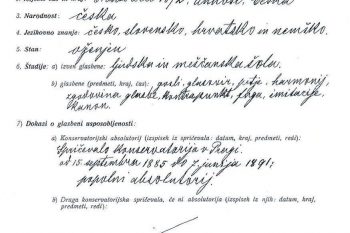 3. Narodnost: češka
4. Jezikovno znanje: češko, slovensko, hrvatsko in nemško.
5. Stan: oženjen
6. Študije: a) izven glasbene: ljudska in meščanska šola.
b) glasbene (predmeti, kraj, čas): gosli, glasovir, petje, harmonij,
zgodovina glasbe, kontrapunkt, fuga, imitacije,
kanon.
7) Dokazi o glasbeni usposobljenosti:
a) Konservatorijski absolutorij (izspisek iz spričevala: datum, kraj, predmeti, redi):
Spričevalo Konservatorija v Pragi
od 15. septembra 1885 do 7. junija 1891;
popolni absolutorij.
b) Druga konservatorijska spričevala, če ni absolutorija (izspisek iz njih: datum, kraj,
predmeti, redi):